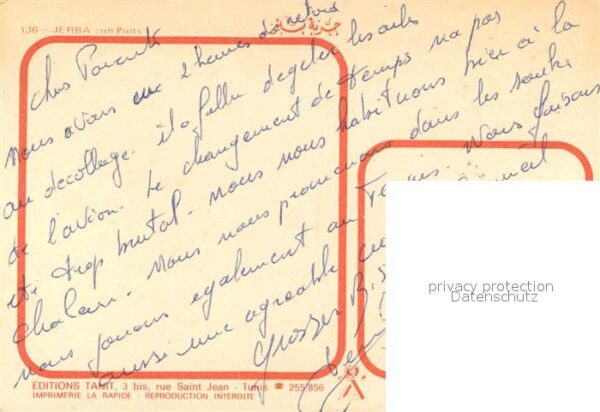 136 - JERBA : un Puits
جربة
Chers Parents
Nous avons eu 2 heures de retard
au décollage. il a fallu dégeler les ailes
de l'avion. Le changement de temps n'a pas
été trop brutal. Nous nous habituons bien à la
chaleur. Nous nous promenons dans les souks
nous jouons également au Tennis. Nous faisons
aussi une agréable
Grosses Bises
privacy protection
Datenschutz
EDITIONS TANIT, 3 bis, rue Saint Jean - Tunis ☎ 255 856
IMPRIMERIE LA RAPIDE - REPRODUCTION INTERDITE